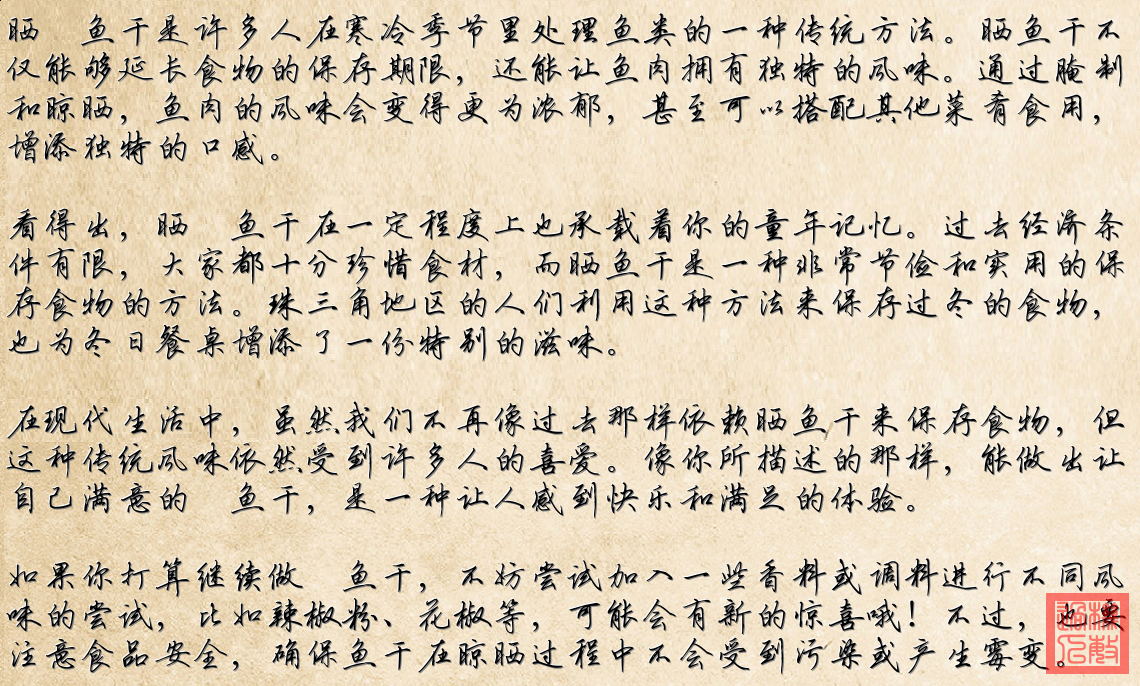 晒 鱼干是许多人在寒冷季节里处理鱼类的一种传统方法。晒鱼干不
仅能够延长食物的保存期限，还能让鱼肉拥有独特的风味。通过腌制
和晾晒，鱼肉的风味会变得更为浓郁，甚至可以搭配其他菜肴食用，
增添独特的口感。
看得出，晒 鱼干在一定程度上也承载着你的童年记忆。过去经济条
件有限，大家都十分珍惜食材，而晒鱼干是一种非常节俭和实用的保
存食物的方法。珠三角地区的人们利用这种方法来保存过冬的食物，
也为冬日餐桌增添了一份特别的滋味。
在现代生活中，虽然我们不再像过去那样依赖晒鱼干来保存食物，但
这种传统风味依然受到许多人的喜爱。像你所描述的那样，能做出让
自己满意的 鱼干，是一种让人感到快乐和满足的体验。
如果你打算继续做 鱼干，不妨尝试加入一些香料或调料进行不同风
味的尝试，比如辣椒粉、花椒等，可能会有新的惊喜哦！不过，也要
注意食品安全，确保鱼干在晾晒过程中不会受到污染或产生霉变。